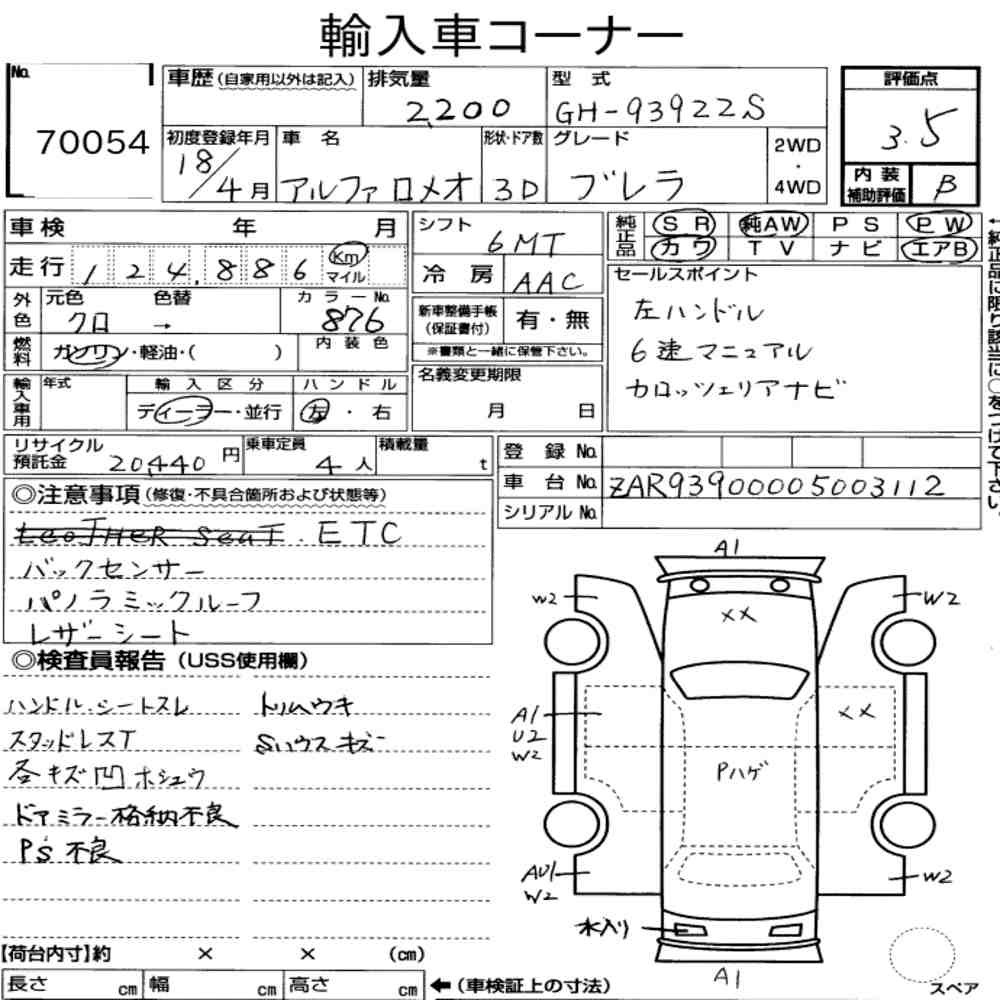 輸入車コーナー
No.
70054
車歴(自家用以外は記入)
排気量
2,200
型 式
GH-93922S
評価点
3.5
初度登録年月
18/4月
車 名
アルファロメオ
形状・ドア数
3D
グレード
ブレラ
2WD
・
4WD
内 装
補助評価
B
車検 年 月
走行 124,886 Km
マイル
外色
元色 色替
クロ →
カラーNo.
876
燃料
ガソリン・軽油・( )
内 装 色
輸入車用
年式
輸 入 区 分
ディーラー・並行
ハ ン ド ル
左 ・ 右
シフト
6MT
冷 房
AAC
新車整備手帳
(保証書付)
有・無
※書類と一緒に保管下さい。
名義変更期限
月 日
純正品
SR 純AW PS PW
カワ TV ナビ エアB
セールスポイント
左ハンドル
6速マニュアル
カロッツェリアナビ
←純正品に限り該当に○をつけて下さい。
リサイクル
預託金
20,440 円
乗車定員
4人
積載量
t
登 録 No.
車 台 No. ZAR93900005003112
シリアル No.
◎注意事項(修復・不具合箇所および状態等)
LeoTHeR SeaT. ETC
バックセンサー
パノラミックルーフ
レザーシート
◎検査員報告(USS使用欄)
ハンドル・シートスレ
スタッドレスT
各キズ凹ホシュウ
ドアミラー格納不良
PS不良
トリムウキ
Sハウスキズ
A1
W2
W2
XX
A1
U2
W2
XX
Pハゲ
AU1
W2
W2
水入り
A1
スペア
【荷台内寸】約 × × (cm)
長さ cm 幅 cm 高さ cm ←(車検証上の寸法)